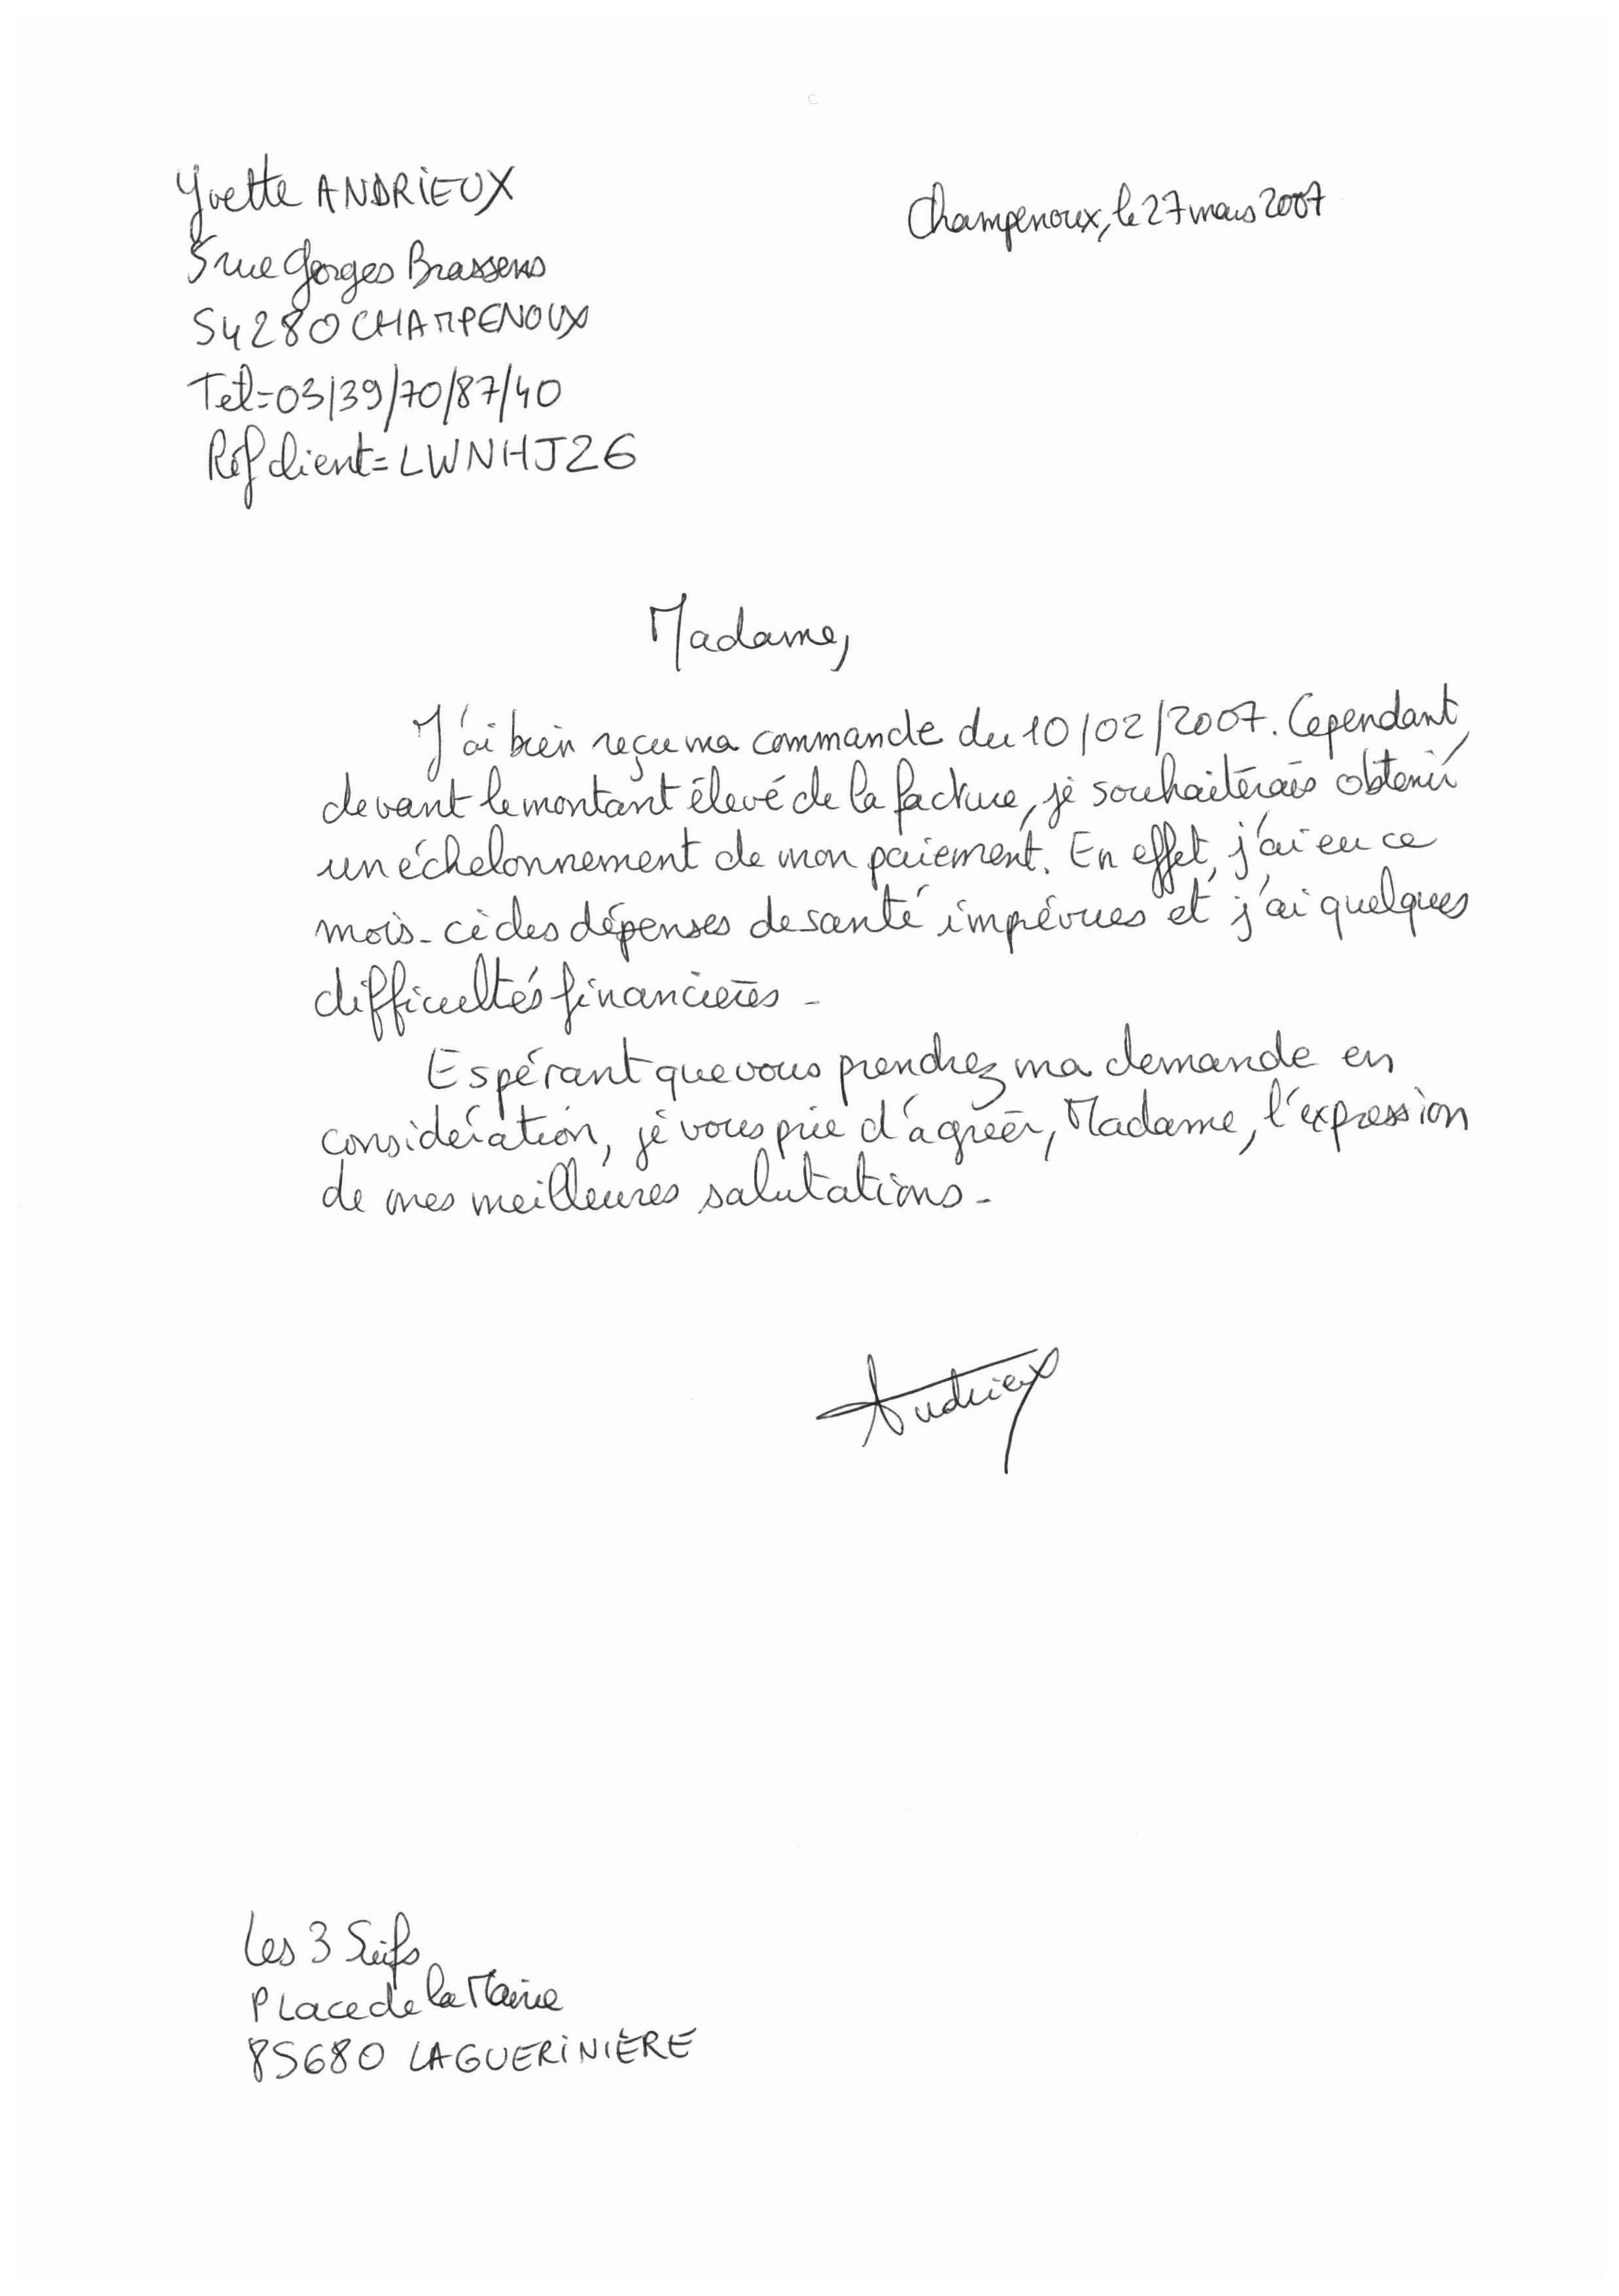 Yvette ANDRIEUX
Champenoux, le 27 mars 2007
5 rue Georges Brassens
54280 CHAMPENOUX
Tel=03/39/70/87/40
Réf client=LWNHJ26
Madame,
J'ai bien reçu ma commande du 10/02/2007. Cependant,
devant le montant élevé de la facture, je souhaiterais obtenir
un échelonnement de mon paiement. En effet, j'ai eu ce
mois-ci des dépenses de santé imprévues et j'ai quelques
difficultés financières -
Espérant que vous prendrez ma demande en
considération, je vous prie d'agréer, Madame, l'expression
de mes meilleures salutations -
Andrieux
Les 3
Place de la Mairie
85680 LA GUERINIÈRE